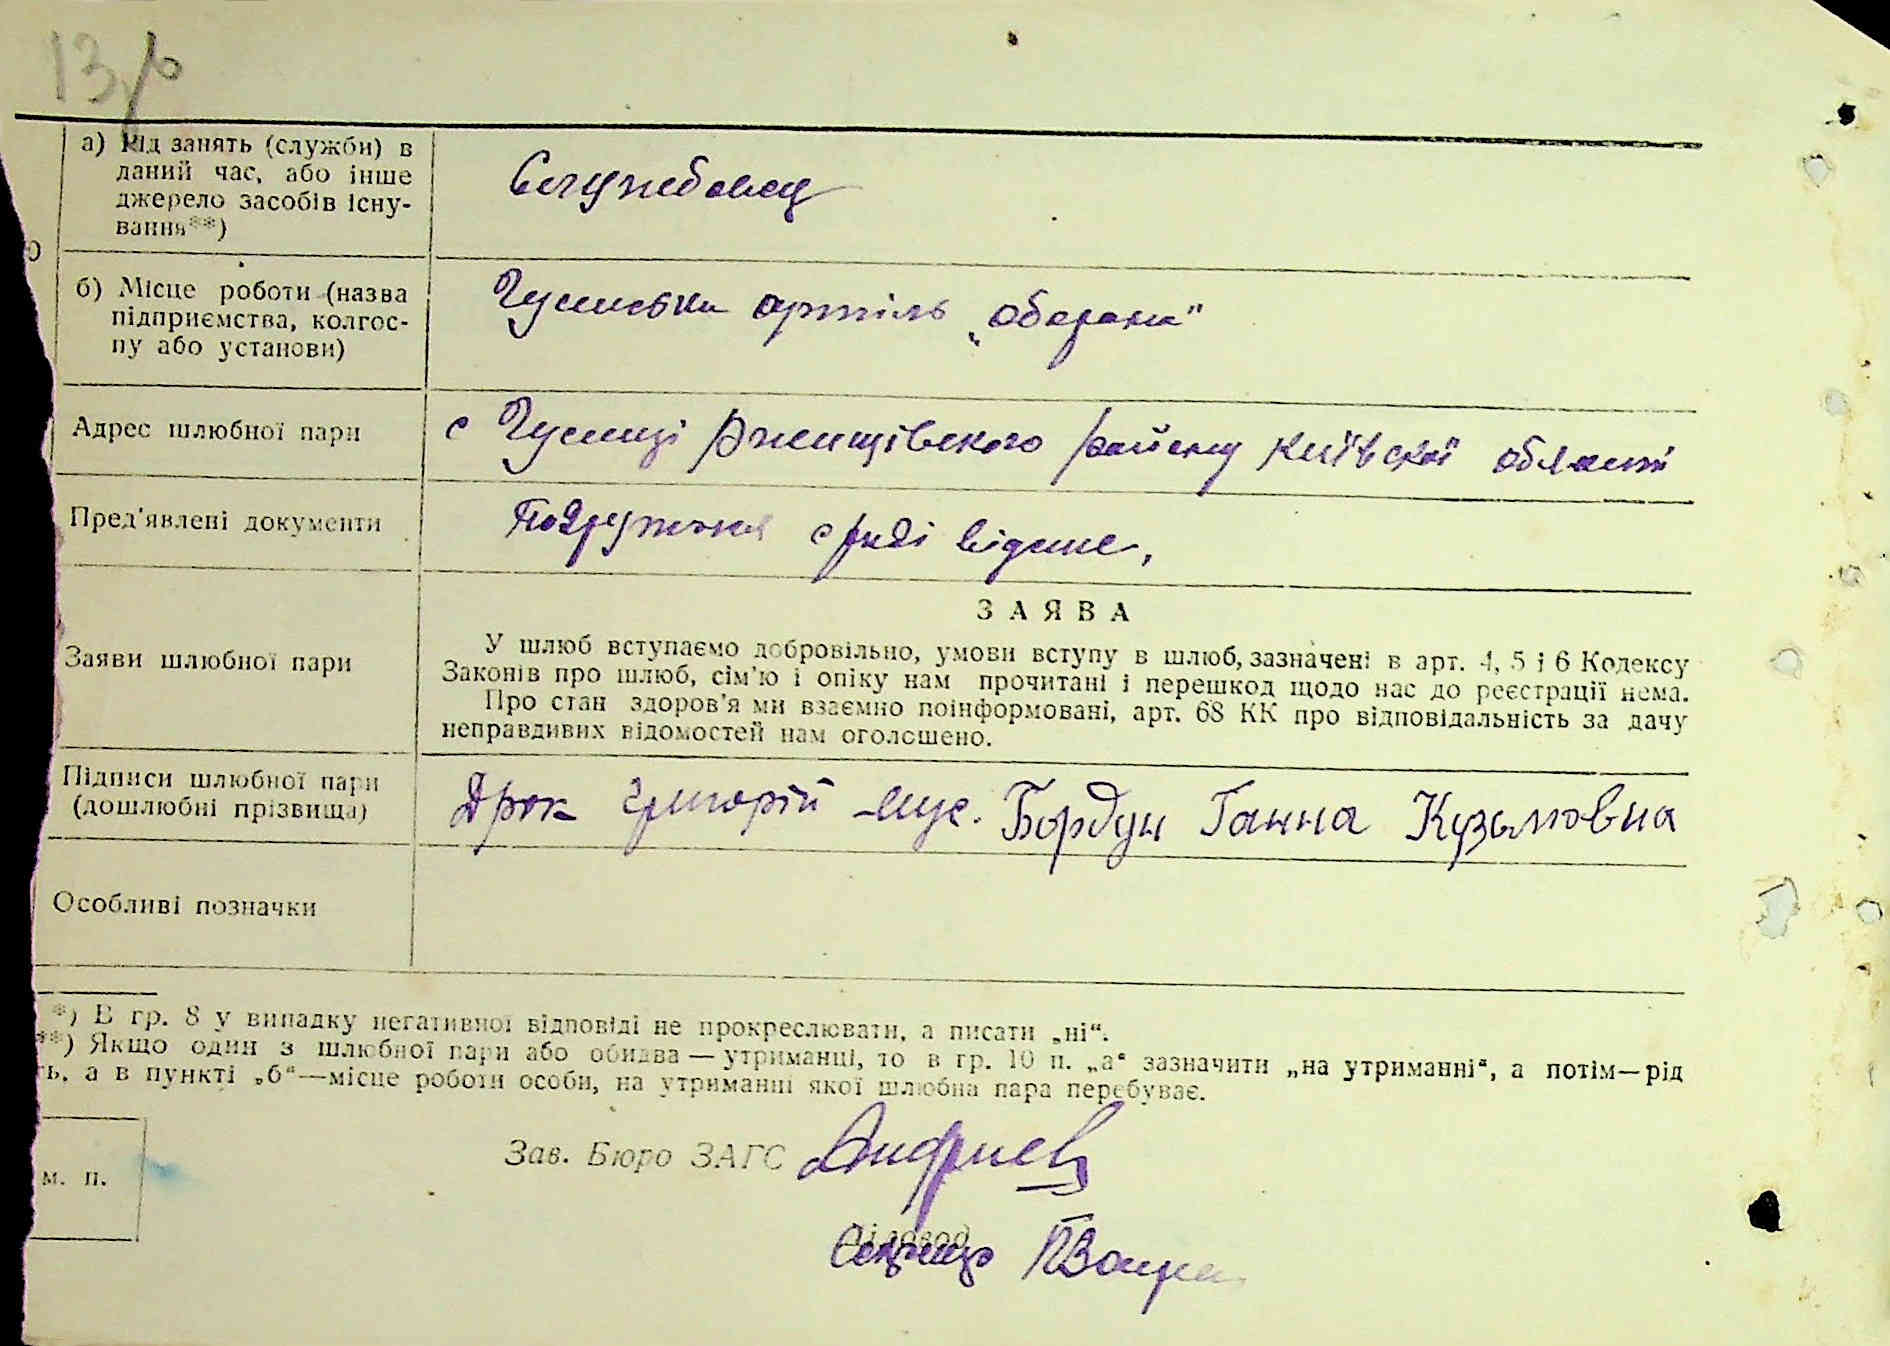 13
а) Рід занять (служби) в
даний час, або інше
джерело засобів існу-
вання**)
Службовец
б) Місце роботи (назва
підприємства, колгос-
пу або установи)
артіль „оборона"
Адрес шлюбної пари
с Гусинці Ржищівского району Київскої області
Пред'явлені документи
Подружжя с/раді відоме,
Заяви шлюбної пари
ЗАЯВА
У шлюб вступаємо добровільно, умови вступу в шлюб, зазначені в арт. 4, 5 і 6 Кодексу
Законів про шлюб, сім'ю і опіку нам прочитані і перешкод щодо нас до реєстрації нема.
Про стан здоров'я ми взаємно поінформовані, арт. 68 КК про відповідальність за дачу
неправдивих відомостей нам оголошено.
Підписи шлюбної пари
(дошлюбні прізвища)
Дрок Григорій Бордун Ганна Кузьмовна
Особливі позначки
*) В гр. 8 у випадку негативної відповіді не прокреслювати, а писати „ні".
**) Якщо один з шлюбної пари або обидва — утриманці, то в гр. 10 п. „а" зазначити „на утриманні", а потім—рід
ть, а в пункті „б"—місце роботи особи, на утриманні якої шлюбна пара перебуває.
Зав. Бюро ЗАГС
м. п.
Діловод